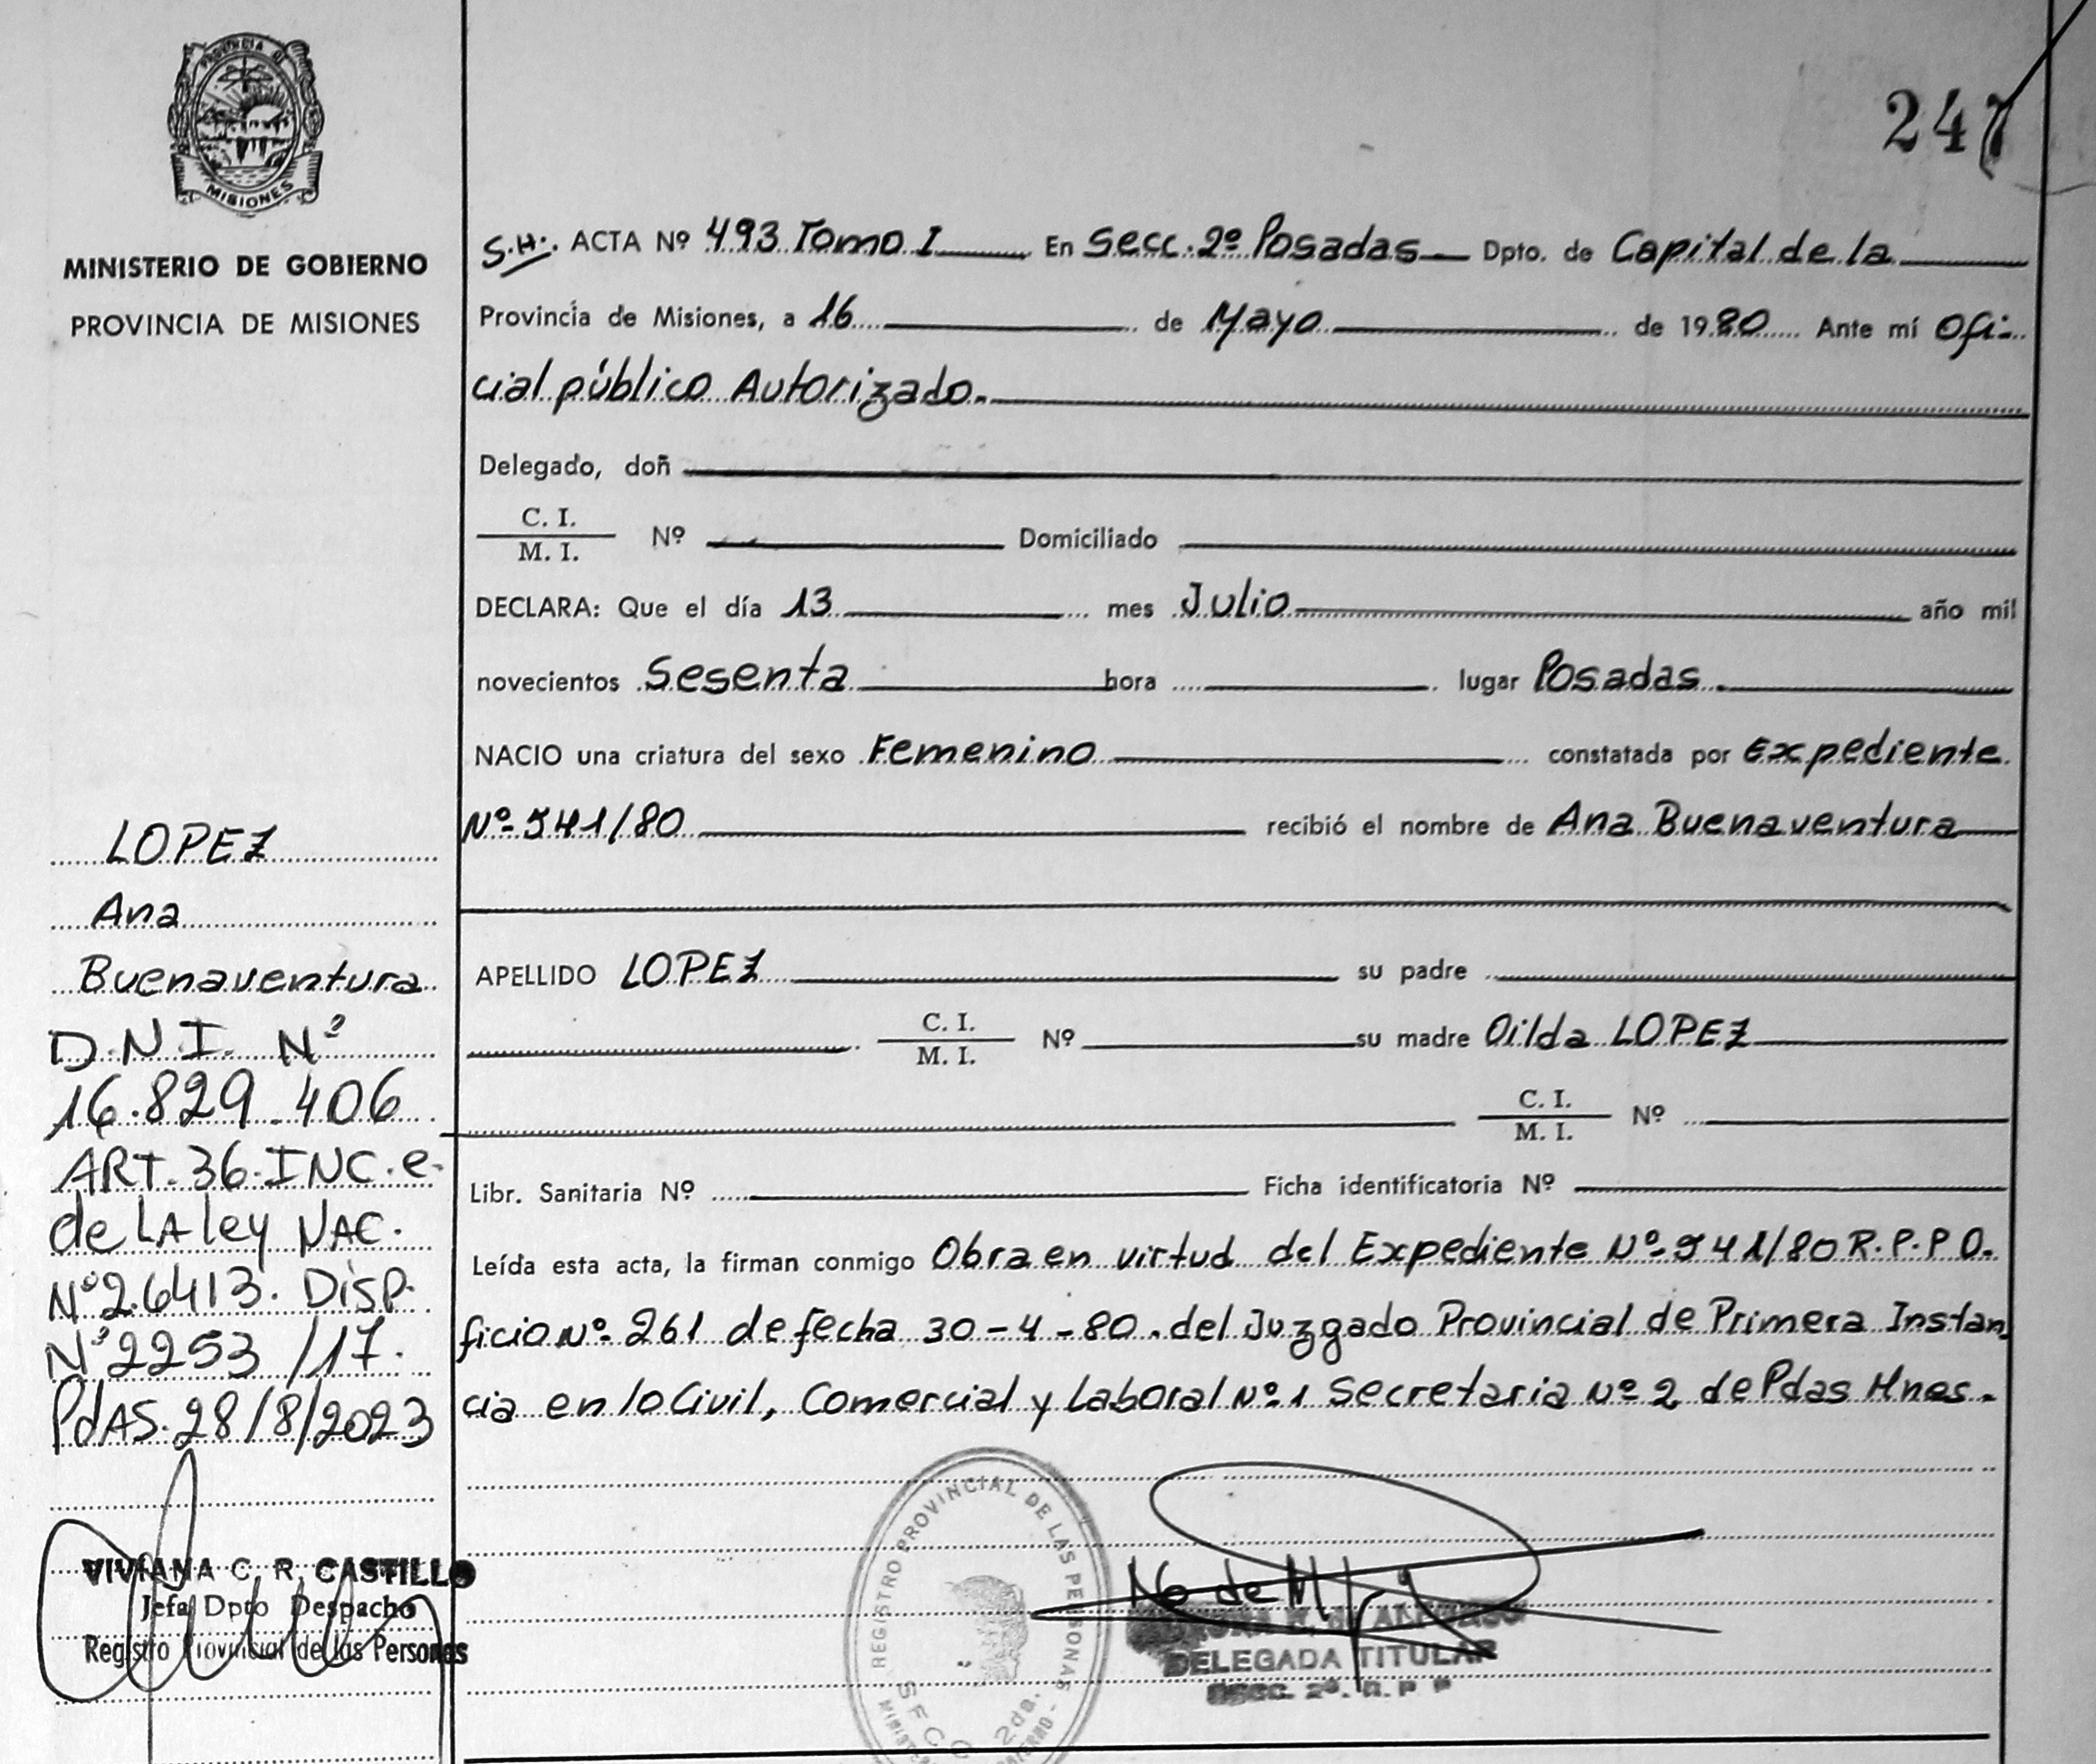 PROVINCIA DE
MISIONES
MINISTERIO DE GOBIERNO
PROVINCIA DE MISIONES
247
S.H. ACTA Nº 493 Tomo I En Secc. 2º Posadas Dpto. de Capital de la
Provincia de Misiones, a 16 de Mayo de 1980 Ante mí Ofi-
cial público Autorizado.
Delegado, doñ
C. I.
M. I. Nº Domiciliado
DECLARA: Que el día 13 mes Julio año mil
novecientos Sesenta hora lugar Posadas
NACIO una criatura del sexo Femenino constatada por Expediente
Nº 541/80 recibió el nombre de Ana Buenaventura
APELLIDO LOPEZ su padre
C. I.
M. I. Nº su madre Oilda LOPEZ
C. I.
M. I. Nº
Libr. Sanitaria Nº Ficha identificatoria Nº
Leída esta acta, la firman conmigo Obra en virtud del Expediente Nº 541/80 R.P.P O.
ficio Nº 261 de fecha 30-4-80. del Juzgado Provincial de Primera Instan
cia en lo Civil, Comercial y Laboral Nº 1 Secretaria Nº 2 de Pdas Mnes.
LOPEZ
Ana
Buenaventura
D.N.I. Nº
16.829.406
ART. 36. INC. e-
de LA ley NAC.
Nº 26413. Disp.
Nº 2253/17.
PdAS. 28/8/2023
VIVIANA C. R. CASTILLO
Jefa Dpto Despacho
Registro Provincial de las Personas
REGISTRO PROVINCIAL DE LAS PERSONAS
SECC 2da.
DELEGADA TITULAR
SECC. 2ª. R. P P